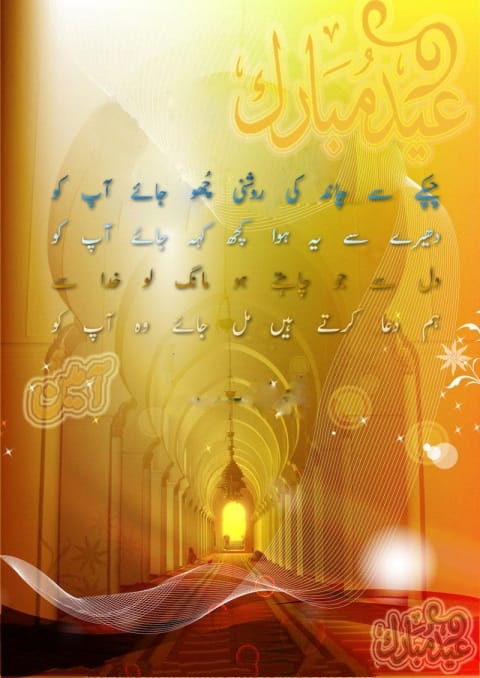 عيد مُبارك
چپکے سے چاند کی روشنی چُھو جائے آپ کو
دھیرے سے یہ ہوا کچھ کہہ جائے آپ کو
دل سے جو چاہتے ہو مانگ لو خدا سے
ہم دعا کرتے ہیں مل جائے وہ آپ کو
آمین
عيد مبارك